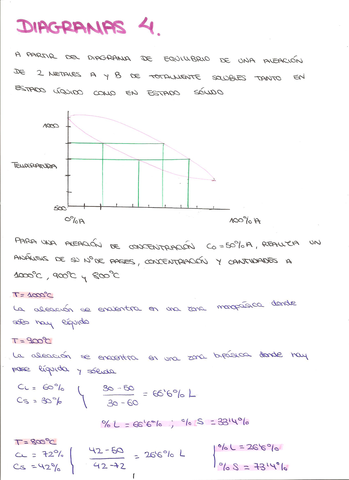 DIAGRAMAS 4.
A PARTIR DEL DIAGRAMA DE EQUILIBRIO DE UNA ALEACIÓN
DE 2 METALES A Y B DE TOTALMENTE SOLUBLES TANTO EN
ESTADO LÍQUIDO COMO EN ESTADO SÓLIDO
1000
TEMPERATURA
500
0%A
100% A
PARA UNA ALEACIÓN DE CONCENTRACIÓN C0 = 50% A, REALIZA UN
ANÁLISIS DE SU Nº DE FASES, CONCENTRACIÓN Y CANTIDADES A
1000ºC, 900ºC y 800ºC
T = 1000ºC
La aleación se encuentra en una zona monofásica donde
solo hay líquido
T = 900ºC
La aleación se encuentra en una zona bifásica donde hay
fase líquida y sólida
CL = 60%
CS = 30%
30 - 50
30 - 60
= 66'6% L
% L = 66'6% ; % S = 33'4%
T = 800ºC
CL = 72%
CS = 42%
42 - 50
42 - 72
= 26'6% L
% L = 26'6%
% S = 73'4%